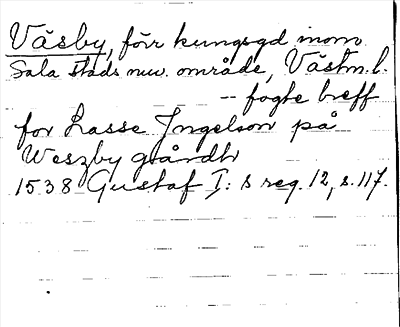 Väsby, förr kungsgd inom
Sala stads nuv. område, Västm. l.
-- fogte breff
for Lasse Jngelson på
Weszby gårdh
1538 Gustaf I:s reg. 12, s. 117.